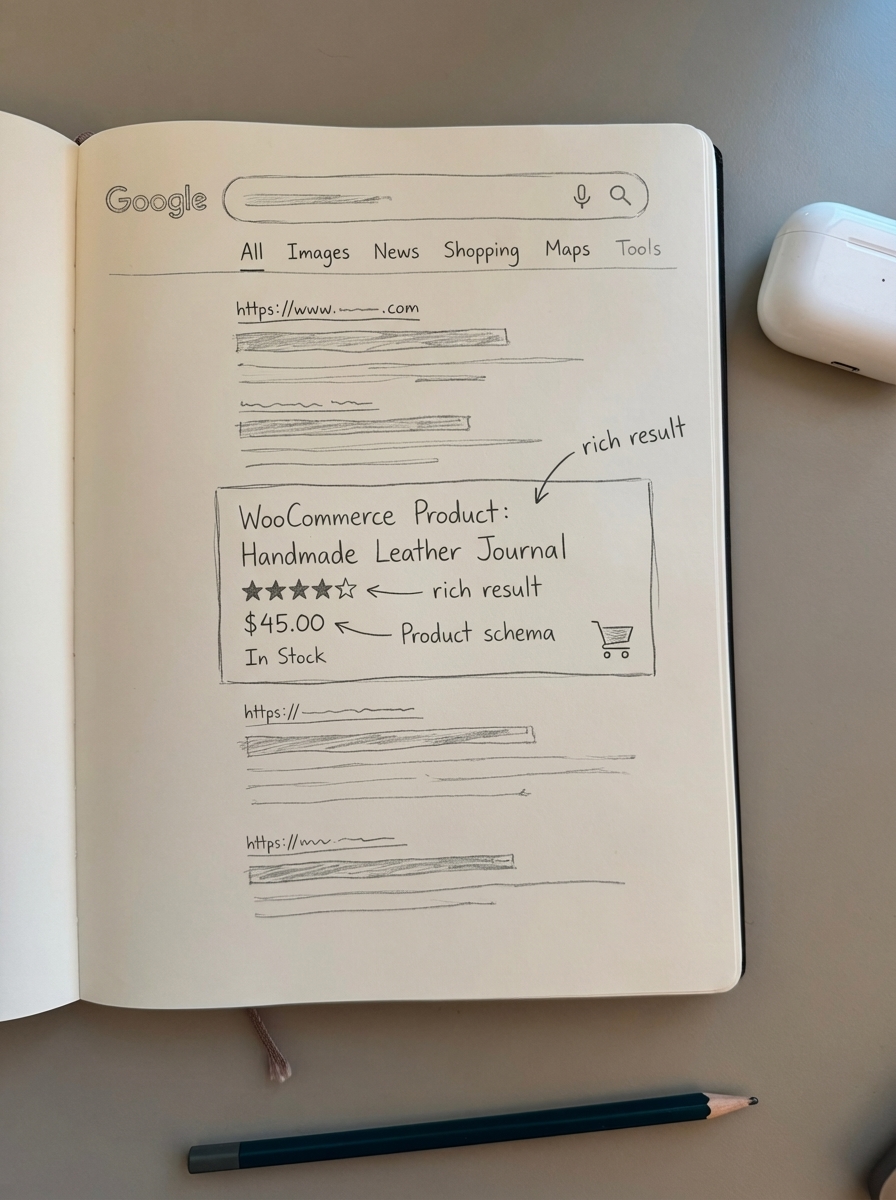 Google
All Images News Shopping Maps Tools
https://www. .com
rich result
WooCommerce Product:
Handmade Leather Journal
★★★★☆ rich result
$45.00 Product schema
In Stock
https://
https://